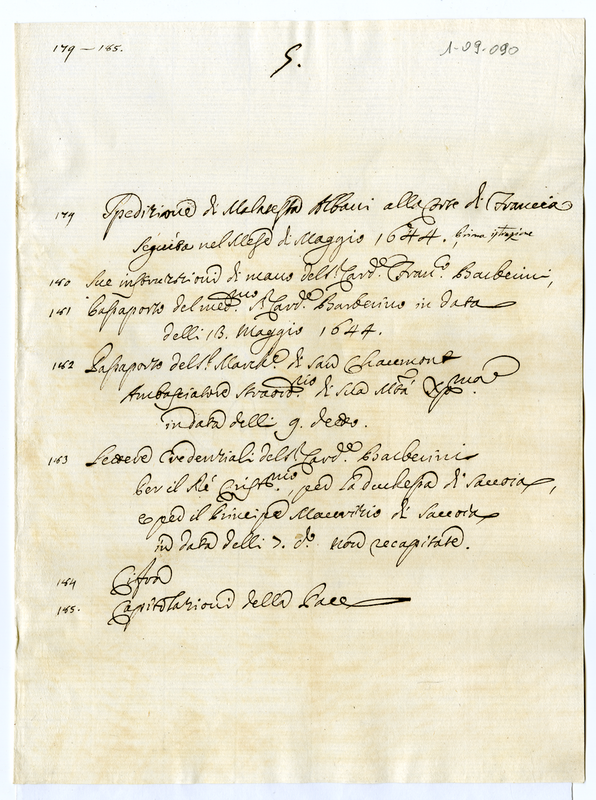 179 — 185.
1-09-090
5.
179 Spedizione di Malatesta Albani alla Corte di Francia
Seguita nel Mese di Maggio 1644. Prima
180 Sue instruzzioni di mano del Sr. Card.e Franc.o Barberini,
181 Passaporto del med.mo Sr. Card.e Barberino in data
delli 13. Maggio 1644.
182 Passaporto del Sr. March.e di San Chaumont
Ambasciatore straord.rio di Sua Mtà Xpma.
in data delli 9. detto.
183 Lettere Credenziali del Sr. Card.e Barberini
per il Rè Crist.mo, per la duchessa di Savoia,
e per il Principe Maurizio di Savoia
in data delli 7. do. non recapitate.
184 Cifra
185. Capitolazioni della Pace